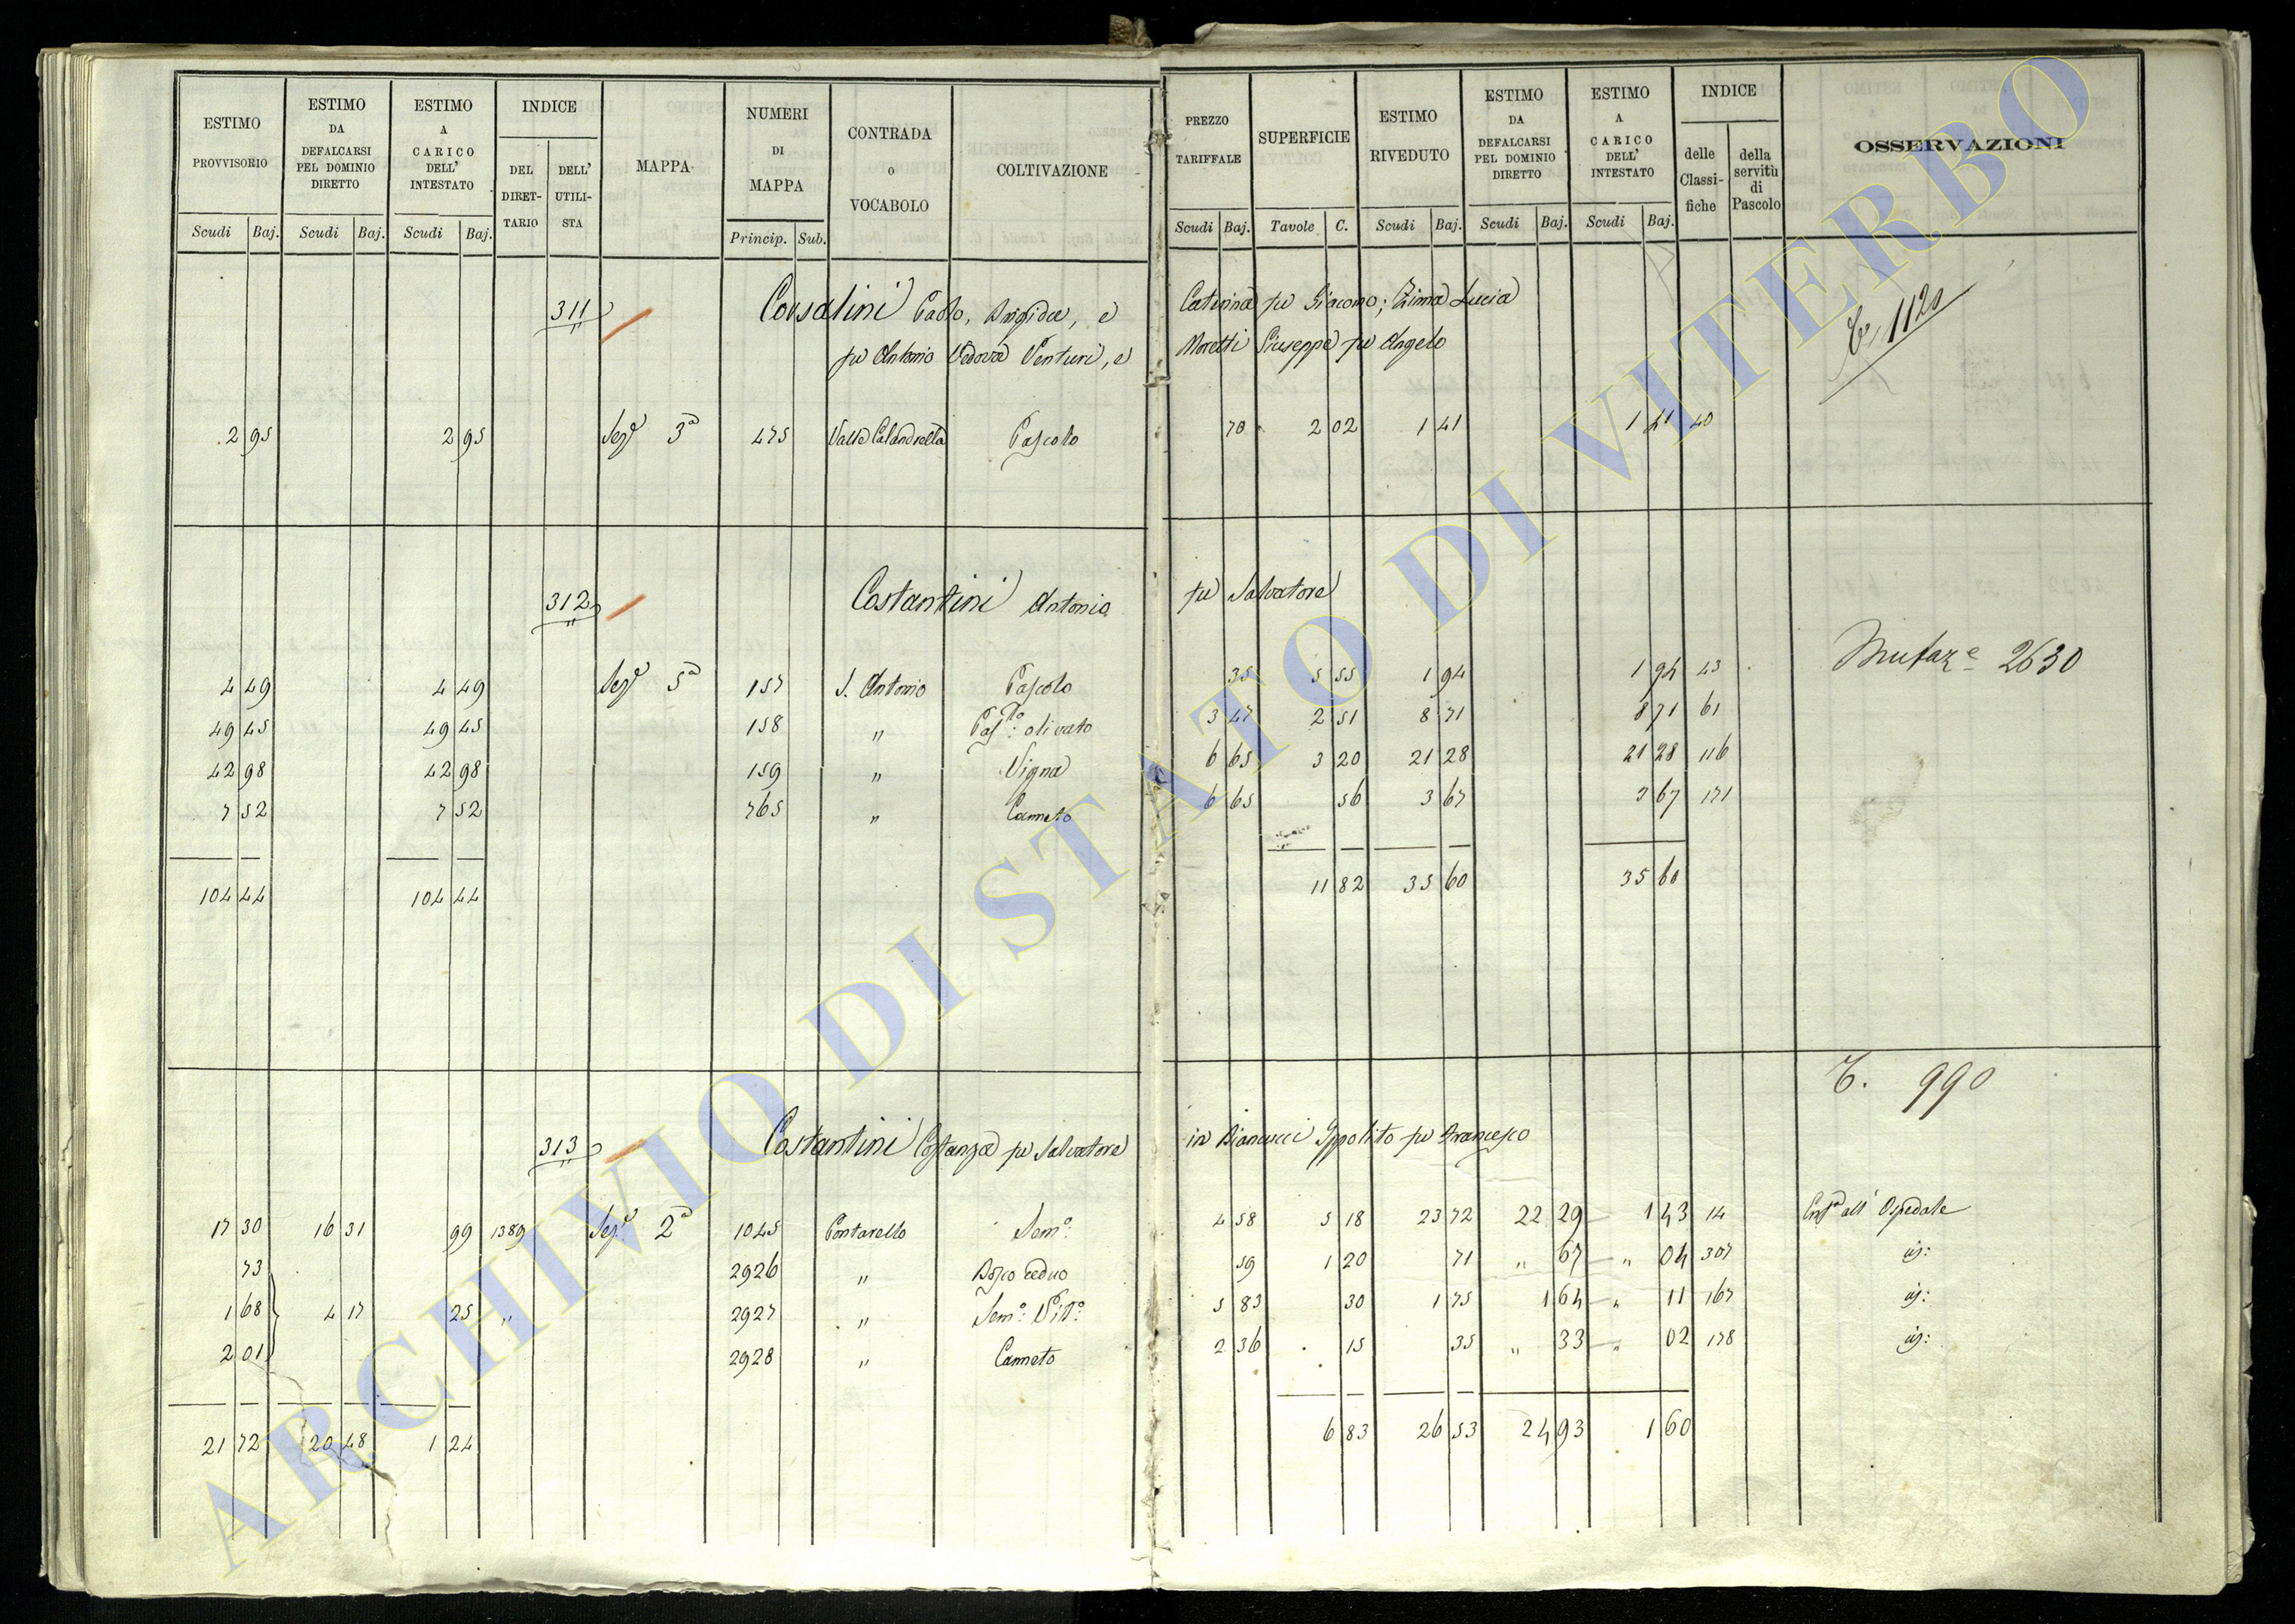 ESTIMO PROVVISORIO | ESTIMO DA DEFALCARSI PEL DOMINIO DIRETTO | ESTIMO A CARICO DELL' INTESTATO | INDICE | MAPPA | NUMERI DI MAPPA | CONTRADA O VOCABOLO | COLTIVAZIONE | PREZZO TARIFFALE | SUPERFICIE | ESTIMO RIVEDUTO | ESTIMO DA DEFALCARSI PEL DOMINIO DIRETTO | ESTIMO A CARICO DELL' INTESTATO | INDICE | OSSERVAZIONI
DEL DIRETTARIO | DELL' UTILISTA | delle Classifiche | della servitù di Pascolo
Scudi | Baj. | Scudi | Baj. | Scudi | Baj. | Princip. | Sub. | Scudi | Baj. | Tavole | C. | Scudi | Baj. | Scudi | Baj. | Scudi | Baj.
311 Corsalini Paolo, Brigida, e Caterina fu Giacomo; Zima Lucia
fu Antonio Vedova Venturi, e Moretti Giuseppe fu Angelo
1120
2 95 | 2 95 | Seze 3a | 475 | Valle Calandrella | Pascolo | 70 | 2 02 | 1 41 | 1 41 | 40
312 Costantini Antonio fu Salvatore
Mutaze 2630
4 49 | 4 49 | Seze 5a | 157 | S. Antonio | Pascolo | 35 | 5 55 | 1 94 | 1 94 | 43
49 45 | 49 45 | 158 | " | Paslo: olivato | 3 47 | 2 51 | 8 71 | 8 71 | 61
42 98 | 42 98 | 159 | " | Vigna | 6 65 | 3 20 | 21 28 | 21 28 | 116
7 52 | 7 52 | 765 | " | Canneto | 6 65 | 56 | 3 67 | 3 67 | 171
104 44 | 104 44 | 11 82 | 35 60 | 35 60
T. 990
313 Costantini Costanza fu Salvatore in Biancucci Ippolito fu Francesco
17 30 | 16 31 | 99 | 1389 | Seze 2a | 1045 | Pontarello | Semo: | 4 58 | 5 18 | 23 72 | 22 29 | 1 43 | 14 | Enfa all' Ospedale
73 | 2926 | " | Bosco ceduo | 59 | 1 20 | 71 | " 67 | " 04 | 307
1 68 | 4 17 | 25 | " | 2927 | " | Semo: Vito: | 5 83 | 30 | 1 75 | 1 64 | " 11 | 167
2 01 | 2928 | " | Canneto | 2 36 | 15 | 35 | " 33 | " 02 | 178
21 72 | 20 48 | 1 24 | 6 83 | 26 53 | 24 93 | 1 60
ARCHIVIO DI STATO DI VITERBO